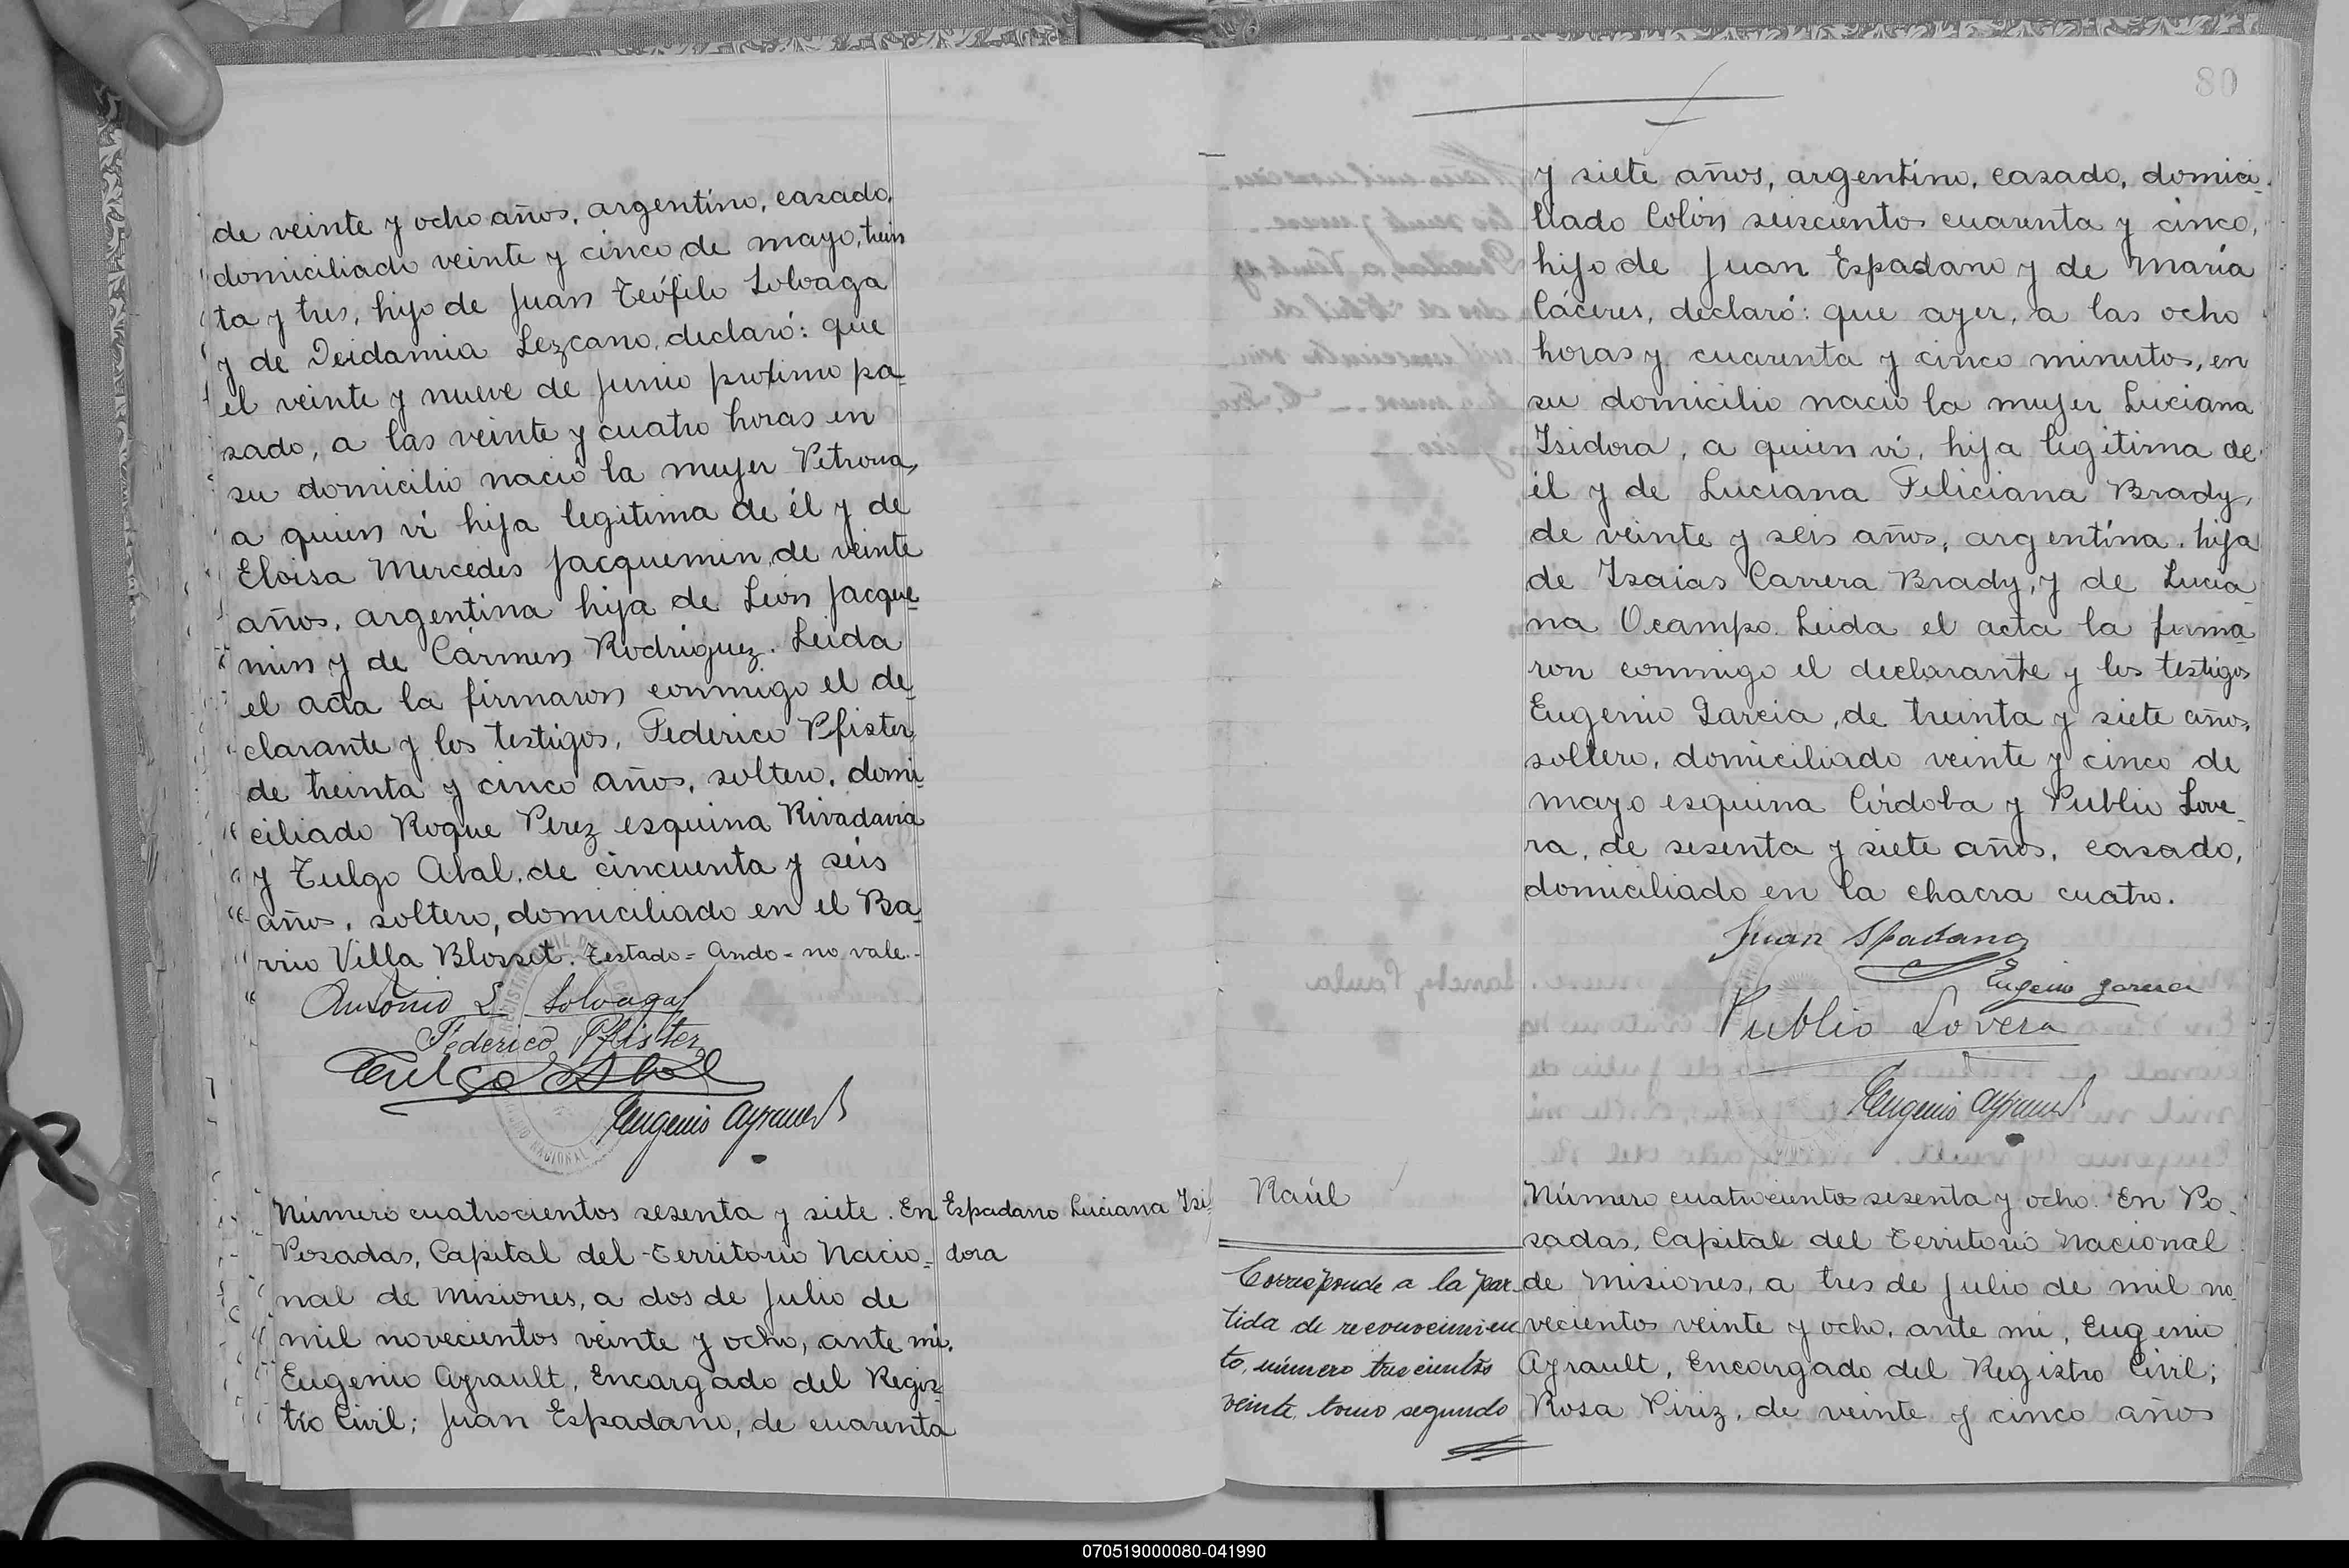 de veinte y ocho años, argentino, casado,
domiciliado veinte y cinco de mayo, trein
ta y tres, hijo de Juan Teófilo Solvaga
y de Deidamia Lezcano, declaró: que
el veinte y nueve de Junio proximo pa-
sado, a las veinte y cuatro horas en
su domicilio nació la mujer Petrona,
a quien ví hija legitima de él y de
Eloisa Mercedes Jacquemin, de veinte
años, argentina hija de León Jacque-
min y de Cármen Rodríguez. Leida
el acta la firmaron conmigo el de-
clarante y los testigos, Federico Pfister
de treinta y cinco años, soltero, domi-
ciliado Roque Perez esquina Rivadavia
y Tulgo Abal, de cincuenta y seis
años, soltero, domiciliado en el Ba-
rrio Villa Blosset. Testado = Ando - no vale.-
Antonio L. Solvaga
Federico Pfister
Tulgo Abal
Eugenio Ayrault
Número cuatrocientos sesenta y siete. En
Posadas, Capital del Territorio Nacio-
nal de Misiones, a dos de Julio de
mil novecientos veinte y ocho, ante mí,
Eugenio Ayrault, Encargado del Regis-
tro Civil; Juan Espadano, de cuarenta
Espadano Luciana Isi-
dora
80
y siete años, argentino, casado, domici-
liado Colón seiscientos cuarenta y cinco,
hijo de Juan Espadano y de María
Cáceres, declaró: que ayer, a las ocho
horas y cuarenta y cinco minutos, en
su domicilio nació la mujer Luciana
Isidora, a quien ví, hija legitima de
él y de Luciana Feliciana Brady,
de veinte y seis años, argentina, hija
de Isaias Carrera Brady, y de Lucia-
na Ocampo. Leida el acta la firma-
ron conmigo el declarante y los testigos
Eugenio Garcia, de treinta y siete años,
soltero, domiciliado veinte y cinco de
mayo esquina Córdoba y Publio Love-
ra, de sesenta y siete años, casado,
domiciliado en la chacra cuatro.
Juan Spadano
Eugenio Garcia
Publio Lovera
Eugenio Ayrault
Raúl
Corresponde a la par-
tida de reconocimien
to, número trescientos
veinte, tomo segundo
Número cuatrocientos sesenta y ocho. En Po-
sadas, Capital del Territorio Nacional
de Misiones, a tres de Julio de mil no-
vecientos veinte y ocho, ante mí, Eugenio
Ayrault, Encargado del Registro Civil;
Rosa Piriz, de veinte y cinco años
070519000080-041990